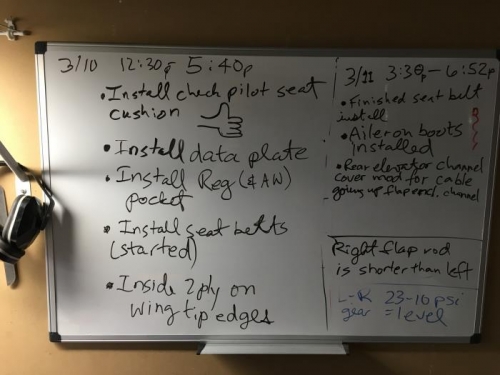 3/10 12:30p 5:40p
• Install check pilot seat
cushion
• Install data plate
• Install Reg (& AW)
pocket
• Install seat belts
(started)
• Inside 2 ply on
wing tip edges
3/11 3:30p – 6:52p
• Finished seat belt
install
• Aileron boots
installed
• Rear elevator channel
cover mod for cable
going up flap end. channel
Right flap rod
is shorter than left
L-R 23-10 psi
gear = level